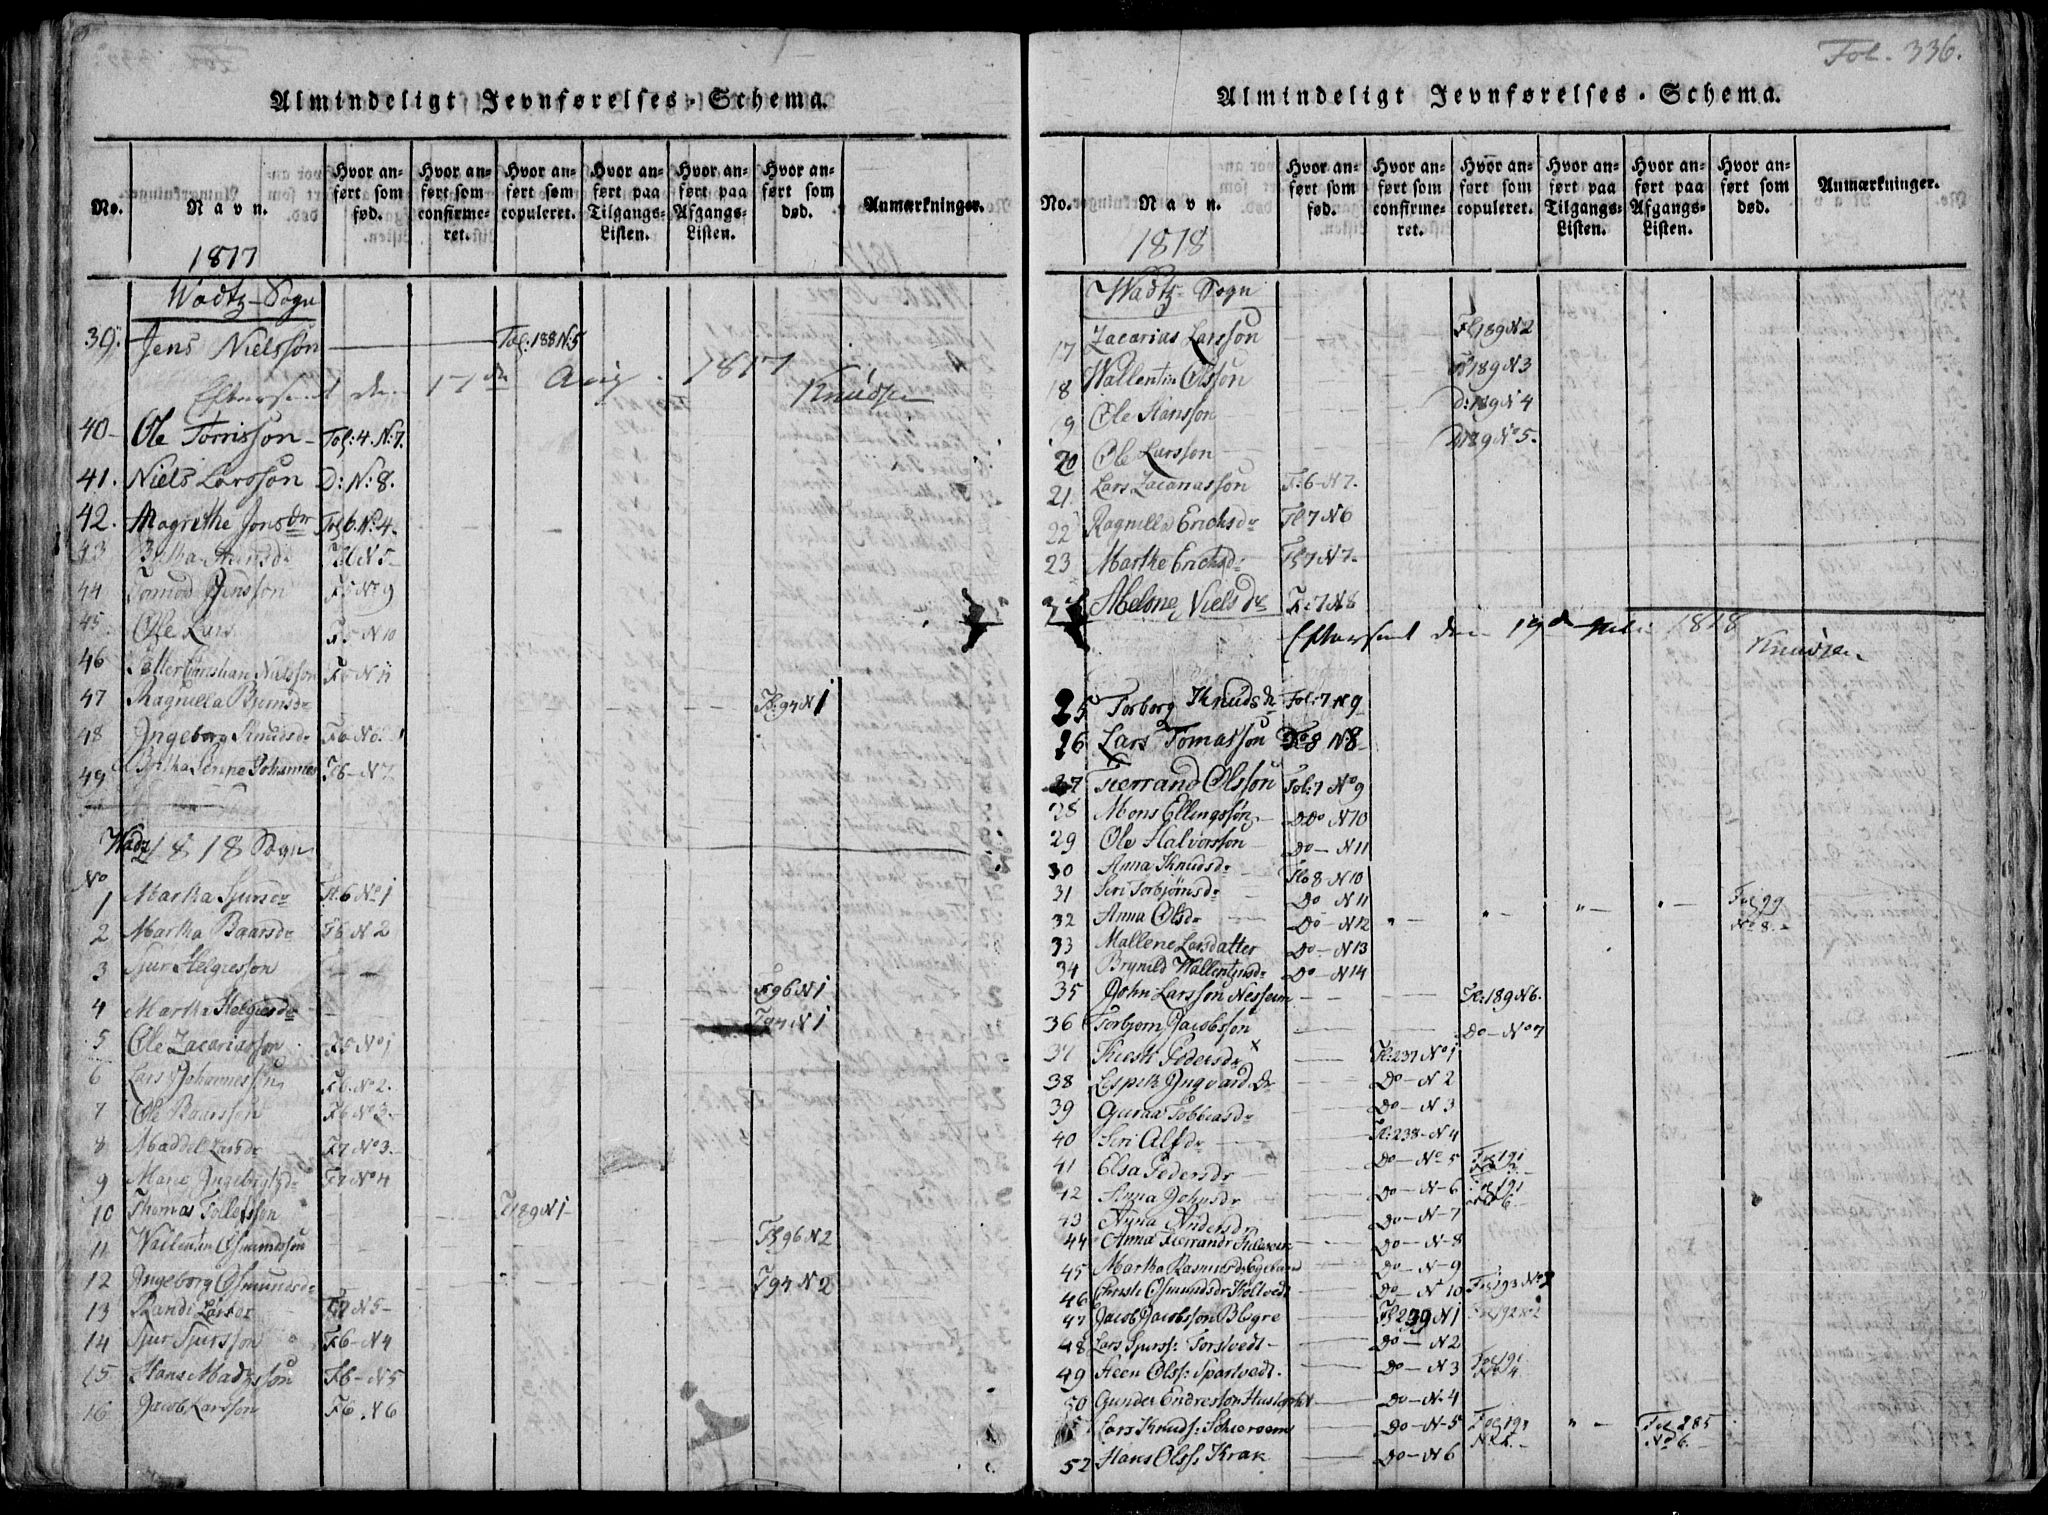 Almindeligt Jevnførelses-Schema.
No. Navn. Hvor anført som fød. Hvor anført som confirmeret. Hvor anført som copuleret. Hvor anført paa Tilgangs-Listen. Hvor anført paa Afgangs-Listen. Hvor anført som død. Anmærkninger.
1817
Wadtz-Sogn
39. Jens Nielsson Fol:188 N:5
Eftersent den 17de Aug. 1817 Knudsen
40- Ole Torrisson- Fol:4 N:7.
41. Niels Larsson D: N:8.
42. Magrethe Jonsdr Fol 6 N:4-
43 N5-
44 Jensson N 9
45. Ole Lars N 10
46 Petter Christian Nielsson N 11
47 Ragnilla F:94 N1
48 Ingeborg Knudsdr F6
49 F6-N7
Wadtz 1818 Sogn
No
1 Martha Sjursdr F:6 No 1
2 Martha Baarsdr F6 N2
3 Sjur Helgesson F96 N1
4 Martha Helgesdr F94 N1
5 Ole Zacariasson F5 No 1
6 Lars Johannesson F6 No 2.
7 Ole Baarsson F6 N3-
8 Maddel Larsdr F7 No 3.
9 Marie Ingebrigtsdr F7 No 4
10 Thomas Tollefsson F189 N1-
11 Wallentin Osmundsson F:96 N2
12 Ingeborg Osmundsdr F94 N2
13 Randi Larsdr F7 N5-
14 Sjur Sjursson F6-N4
15 Hans Madtsson F6-N5
16 Jacob Larsson F6 N6
Fol. 336.
Almindeligt Jevnførelses-Schema.
No. Navn. Hvor anført som fød. Hvor anført som confirmeret. Hvor anført som copuleret. Hvor anført paa Tilgangs-Listen. Hvor anført paa Afgangs-Listen. Hvor anført som død. Anmærkninger.
1818
Wadtz-Sogn
17 Zacarias Larsson Fl 189 N2
18 Wallentin Olsson 189 N3
19 Ole Hansson D:189 N4
20 Ole Larsson D189 No 5.
21 Lars Zacariasson F:6-N7.
22 Ragnilla Erichsdr Fl 7 N6
23 Marthe Erichsd: Fl 7 N7-
Melone Nielsdr F:7 N8
Eftersent den 19de 1818
Knudsen
25 Torborg Knudsdr Fol:7 N9
26 Lars Tomasson 8 N8
27 Fierrand Olsson Fol:7 No 9
28 Mons Ellingsson- Do N10
29 Ole Halvorsson Do-N11
30 Anna Knudsdr Fl 8 N10
31 Seri Torbjørnsdr Do N11
32 Anna Olsdr Do-N12 " - " - " - " - Fol 99 No 8.-
33 Mallene Larsdatter Do-N13
34 Brynild Wallentinsd: Do-N14
35 John Larsson Nesheim Fl:189 N6.
36 Torbjørn Jacobsson Do-No 7
37 Kirsti Pedersdr x Fl:237 No 1
38 Ingvard Dr Do-N 2
39 Guroa Tobbiasdr Do-N 3
40 Seri Alfdr Fl:238-N4
41 Elsa Pedersdr Do-No 5 Fol 191
42 Anna Johnsdr Do-N-6 Fol 191
43 Andersdr Do-N-7
44 Anna Fierrandr Do-N-8
45 Martha Rasmusdr Do-N-9
46 Christi Osmundsdr Do-N10 Fol 193 No
47 Jacob Jacobsson Fl 239 N1 Fol 192 No 2
48 Lars Sjurss: Torstvedt- Do-N2
49 Steen Olss: Do-N3 Fol 191
50 Gunder Endresson Do-N-4
Lars Knuds: Do-N-5 Fol 191 " - Fol 285 No 6.-
52 Hans Olss: Krak Do-N6